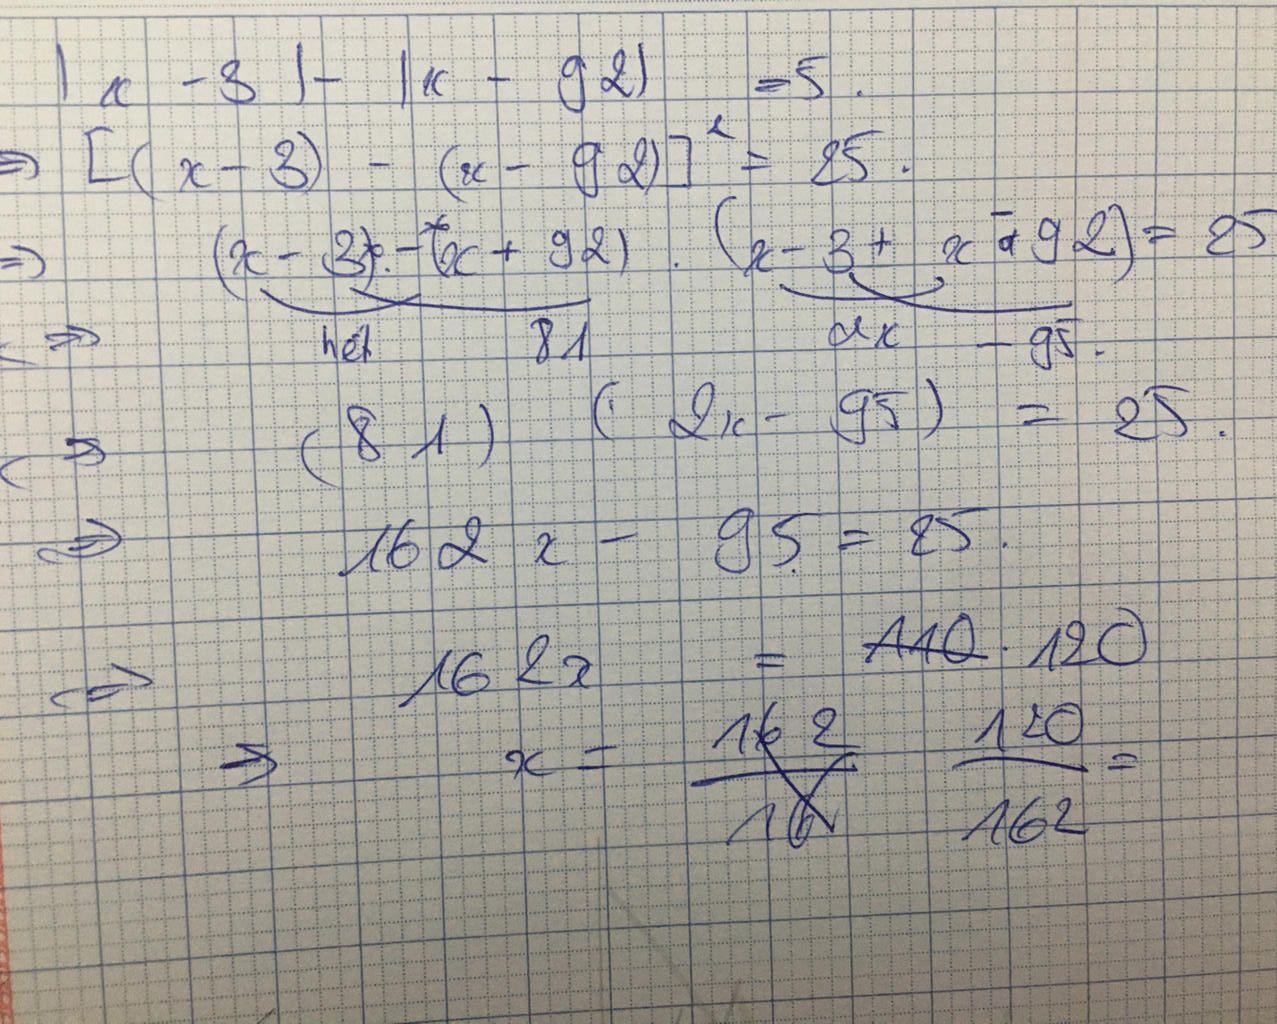 |x - 3| - |x - 92| = 5.
=> [(x - 3) - (x - 92)]² = 25.
=> (x - 3) - (x + 92) . (x - 3 + x - 92) = 25
<=> hết 81 2x - 95.
<=> (81) (2x - 95) = 25.
<=> 162x - 95 = 25.
<=> 162x = 110. 120
=> x = 162/16 120/162 =